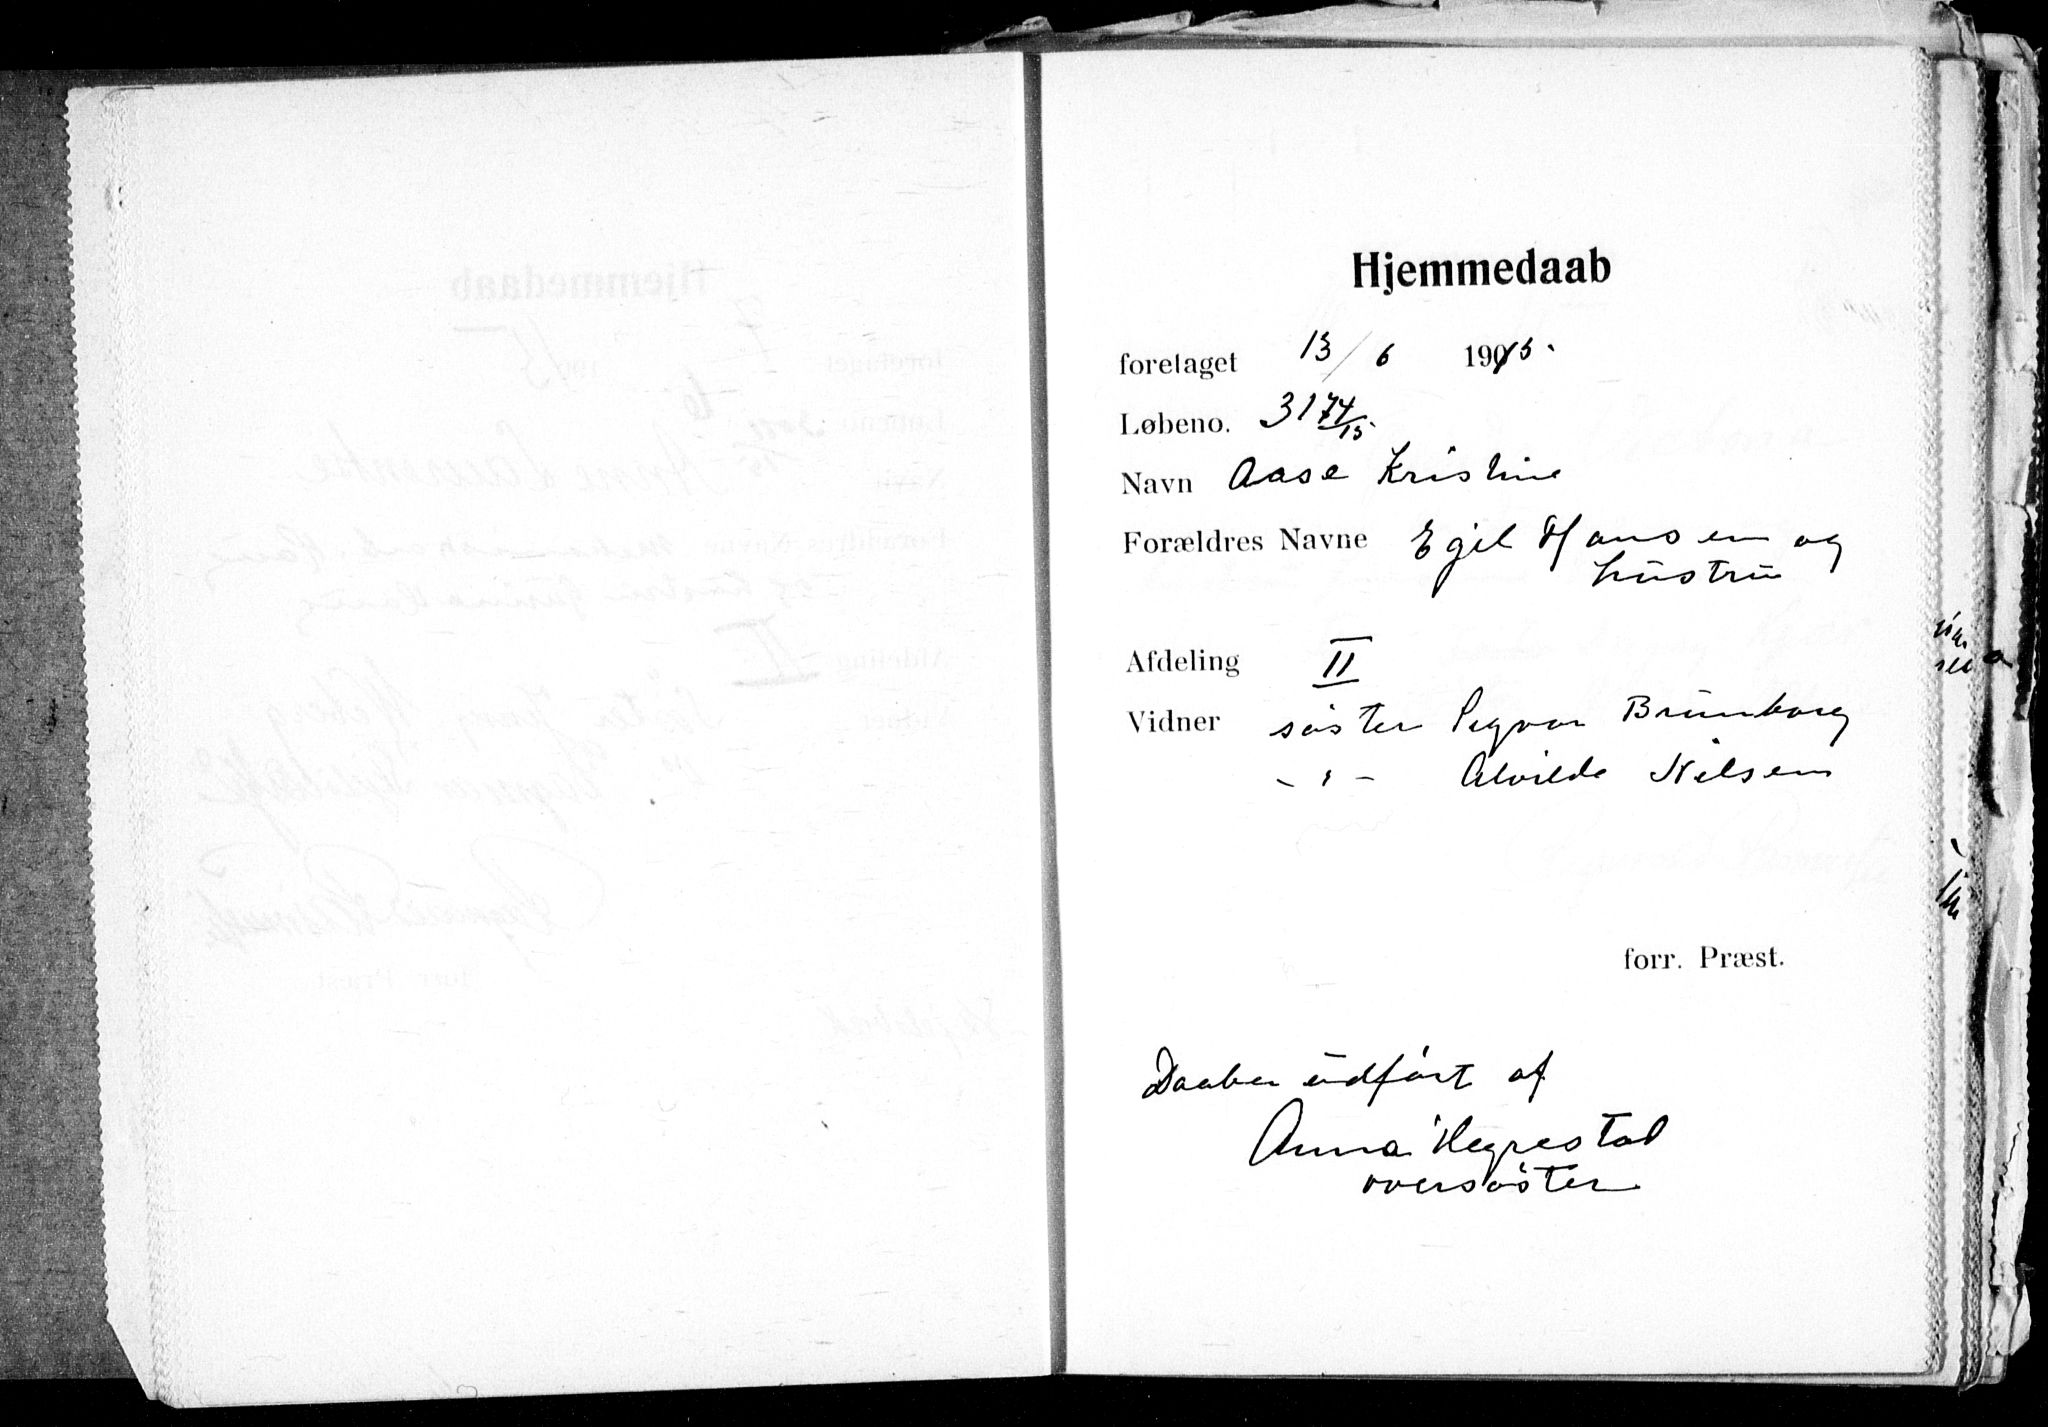 Hjemmedaab
foretaget 13/6 1915.
Løbeno. 3174/15.
Navn Aase Kristine
Forældres Navne Egil Hansen og
hustru
Afdeling II
Vidner søster Sigvor Brunborg
- " - Alvilde Nilsen
forr. Præst.
Daaben udført af
Anna Hegrestad
oversøster